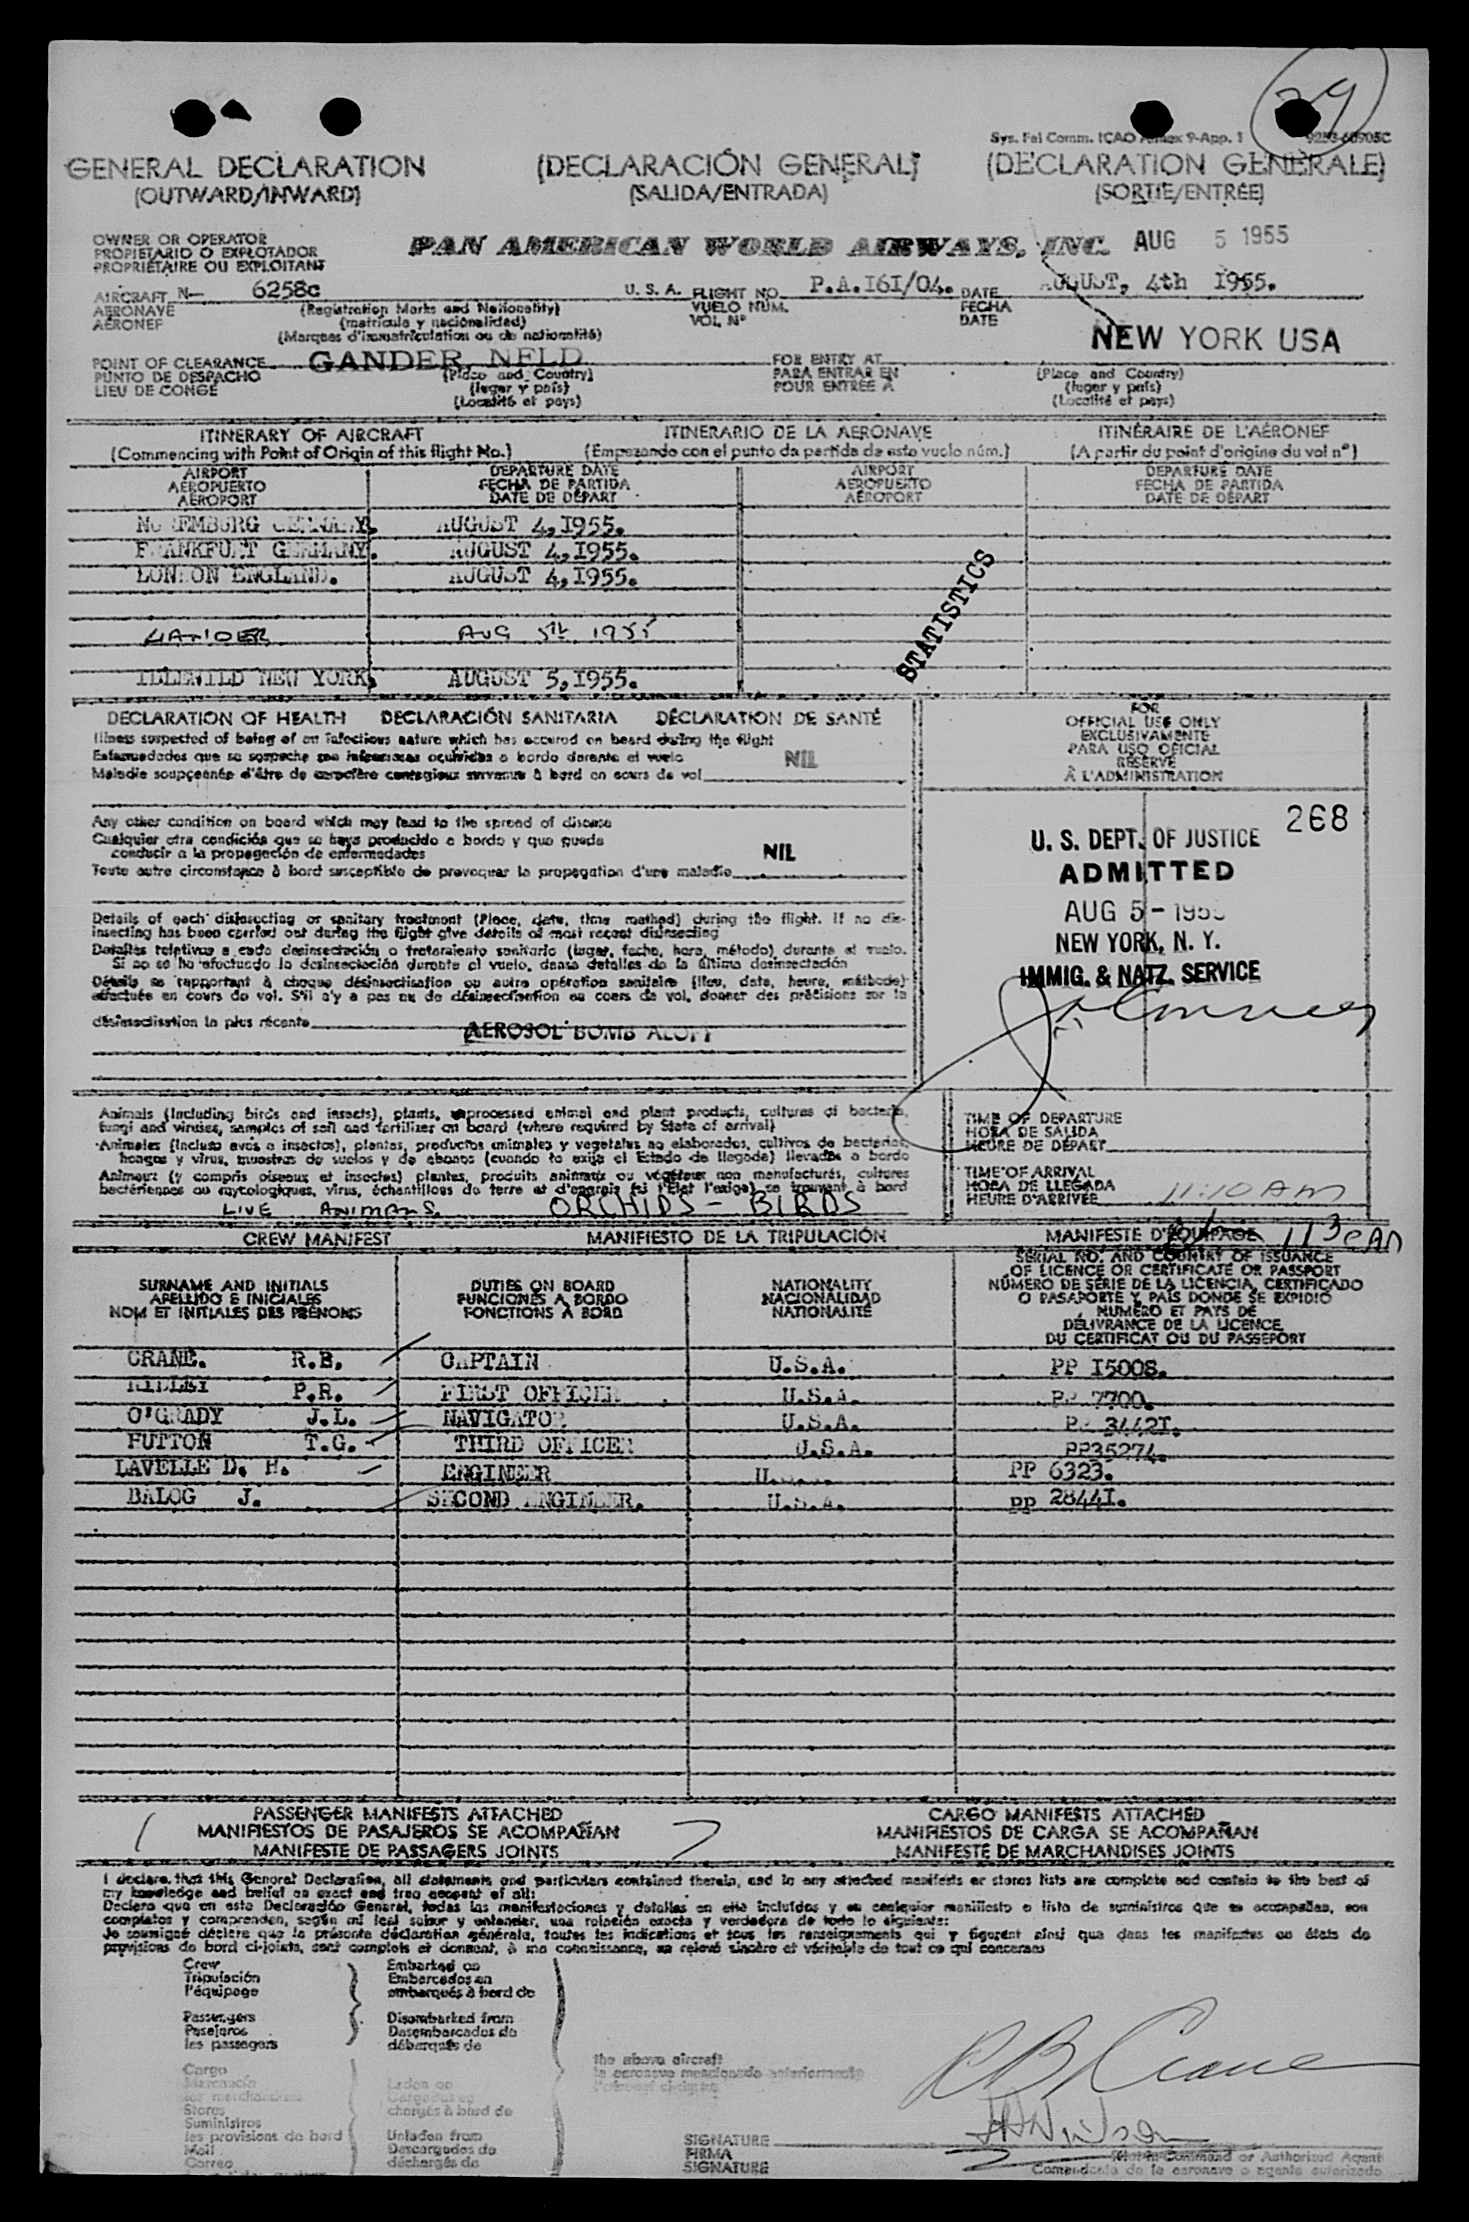 Sys. Fal Comm. ICAO Annex 9-App. 1
GENERAL DECLARATION (DECLARACIÓN GENERAL) (DÉCLARATION GÉNÉRALE)
(OUTWARD/INWARD) (SALIDA/ENTRADA) (SORTIE/ENTRÉE)
OWNER OR OPERATOR
PROPIETARIO O EXPLOTADOR
PROPRIÉTAIRE OU EXPLOITANT
PAN AMERICAN WORLD AIRWAYS, INC. AUG 5 1955
AIRCRAFT N— 6258c U. S. A. FLIGHT NO. P.A.I6I/04. DATE AUGUST, 4th I955.
AERONAVE (Registration Marks and Nationality) VUELO NÚM. FECHA
AÉRONEF (matrícula y nacionalidad) VOL Nº DATE
(Marques d'immatriculation ou de nationalité)
NEW YORK USA
POINT OF CLEARANCE GANDER NFLD FOR ENTRY AT
PUNTO DE DESPACHO (Place and Country) PARA ENTRAR EN (Place and Country)
LIEU DE CONGÉ (lugar y país) POUR ENTRÉE À (lugar y país)
(Localité et pays) (Localité et pays)
ITINERARY OF AIRCRAFT ITINERARIO DE LA AERONAVE ITINÉRAIRE DE L'AÉRONEF
(Commencing with Point of Origin of this flight No.) (Empezando con el punto de partida de este vuelo núm.) (A partir du point d'origine du vol nº)
AIRPORT DEPARTURE DATE AIRPORT DEPARTURE DATE
AEROPUERTO FECHA DE PARTIDA AEROPUERTO FECHA DE PARTIDA
AÉROPORT DATE DE DÉPART AÉROPORT DATE DE DÉPART
GERMANY. AUGUST 4,I955.
FRANKFURT GERMANY. AUGUST 4,I955.
LONDON ENGLAND. AUGUST 4,I955.
STATISTICS
GANDER AUG 5th 1955
IDLEWILD NEW YORK. AUGUST 5,I955.
DECLARATION OF HEALTH DECLARACIÓN SANITARIA DÉCLARATION DE SANTÉ
Illness suspected of being of an infectious nature which has occured on board during the flight
Enfermedades que se sospeche son infecciosas ocurridas a bordo durante el vuelo NIL
Maladie soupçonnée d'être de caractère contagieux survenue à bord en cours de vol
FOR
OFFICIAL USE ONLY
EXCLUSIVAMENTE
PARA USO OFICIAL
RÉSERVÉ
À L'ADMINISTRATION
Any other condition on board which may lead to the spread of disease
Cualquier otra condición que se haya producido a bordo y que pueda
conducir a la propagación de enfermedades NIL
Toute autre circonstance à bord susceptible de provoquer la propagation d'une maladie
268
U. S. DEPT. OF JUSTICE
ADMITTED
AUG 5 - 195
NEW YORK, N. Y.
IMMIG. & NATZ. SERVICE
Details of each disinsecting or sanitary treatment (Place, date, time method) during the flight. If no dis-
insecting has been carried out during the flight give details of most recent disinsecting
Detalles relativos a cada desinsectación o tratamiento sanitario (lugar, fecha, hora, método) durante el vuelo.
Si no se ha efectuado la desinsectación durante el vuelo, dense detalles de la última desinsectación
Détails se rapportant à chaque désinsectisation ou autre opération sanitaire (lieu, date, heure, méthode)
effectuée en cours de vol. S'il n'y a pas eu de désinsectisation au cours de vol, donner des précisions sur la
désinsectisation la plus récente AEROSOL BOMB ALOFT
Animals (including birds and insects), plants, unprocessed animal and plant products, cultures of bacteria,
fungi and viruses, samples of soil and fertilizer on board (where required by State of arrival)
Animales (incluso aves e insectos), plantas, productos animales y vegetales no elaborados, cultivos de bacterias,
hongos y virus, muestras de suelos y de abonos (cuando lo exija el Estado de llegada) llevados a bordo
Animaux (y compris oiseaux et insectes) plantes, produits animaux ou végétaux non manufacturés, cultures
bactériennes ou mycologiques, virus, échantillons de terre et d'engrais (si l'Etat l'exige) se trouvant à bord
LIVE ANIMALS. ORCHIDS - BIRDS
TIME OF DEPARTURE
HORA DE SALIDA
HEURE DE DÉPART
TIME OF ARRIVAL
HORA DE LLEGADA
HEURE D'ARRIVÉE 11:10 AM
CREW MANIFEST MANIFIESTO DE LA TRIPULACIÓN MANIFESTE D'ÉQUIPAGE
SURNAME AND INITIALS
APELLIDO E INICIALES
NOM ET INITIALES DES PRÉNOMS
DUTIES ON BOARD
FUNCIONES A BORDO
FONCTIONS À BORD
NATIONALITY
NACIONALIDAD
NATIONALITÉ
SERIAL NO. AND COUNTRY OF ISSUANCE
OF LICENCE OR CERTIFICATE OR PASSPORT
NÚMERO DE SÉRIE DE LA LICENCIA, CERTIFICADO
O PASAPORTE Y PAÍS DONDE SE EXPIDIÓ
NUMÉRO ET PAYS DE
DÉLIVRANCE DE LA LICENCE,
DU CERTIFICAT OU DU PASSEPORT
CRANE. R.B. CAPTAIN U.S.A. PP I5008.
P.R. FIRST OFFICER U.S.A. PP 7700.
O'GRADY J.L. NAVIGATOR U.S.A. PP 3442I.
HUTTON T.G. THIRD OFFICER U.S.A. PP35274.
LAVELLE D. H. ENGINEER PP 6323.
BALOG J. SECOND ENGINEER. U.S.A. pp 2844I.
PASSENGER MANIFESTS ATTACHED CARGO MANIFESTS ATTACHED
MANIFIESTOS DE PASAJEROS SE ACOMPAÑAN MANIFIESTOS DE CARGA SE ACOMPAÑAN
MANIFESTE DE PASSAGERS JOINTS MANIFESTE DE MARCHANDISES JOINTS
I declare that this General Declaration, all statements and particulars contained therein, and in any attached manifests or stores lists are complete and contain to the best of
my knowledge and belief an exact and true account of all:
Declaro que en esta Declaración General, todas las manifestaciones y detalles en ella incluidos y en cualquier manifiesto o lista de suministros que se acompañan, son
completos y comprenden, según mi leal saber y entender, una relación exacta y verdadera de todo lo siguiente:
Je soussigné déclare que la présente déclaration générale, toutes les indications et tous les renseignements qui y figurent ainsi que dans les manifestes ou états de
provisions de bord ci-joints, sont complets et donnent, à ma connaissance, un relevé sincère et véritable de tout ce qui concerne:
Crew Embarked on
Tripulación Embarcados en
l'équipage embarqués à bord de
Passengers Disembarked from
Pasajeros Desembarcados de
les passagers débarqués de
the above aircraft
la aeronave mencionada anteriormente
Cargo
Stores
Suministros
les provisions de bord
Mail
Correo
Laden on
chargés à bord de
Unladen from
Descargados de
déchargés de
R B Crane
SIGNATURE
FIRMA
SIGNATURE
Pilot-in-Command or Authorized Agent
Comandante de la aeronave o agente autorizado